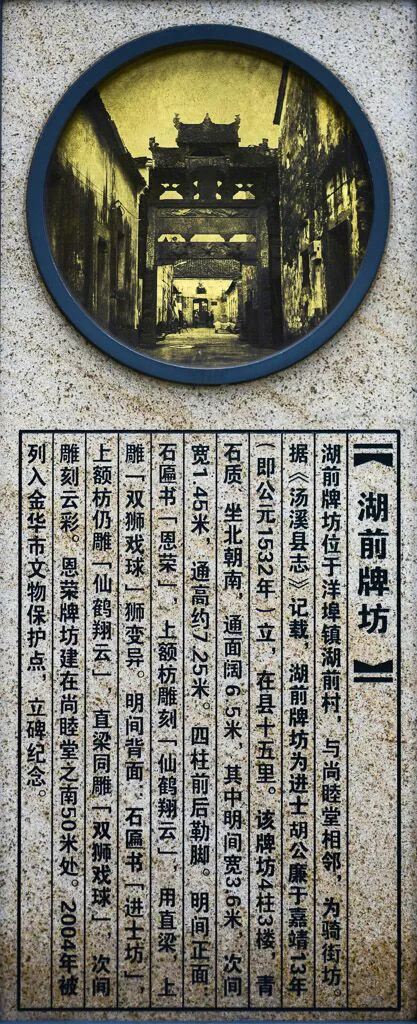 【湖前牌坊】
湖前牌坊位于洋埠镇湖前村，与尚睦堂相邻，为骑街坊。
据《汤溪县志》记载，湖前牌坊为进士胡公廉于嘉靖13年
（即公元1532年）立，在县十五里。该牌坊4柱3楼，青
石质，坐北朝南，通面阔6.5米，其中明间宽3.6米，次间
宽1.45米，通高约7.25米。四柱前后勒脚。明间正面：
石匾书「恩荣」，上额枋雕刻「仙鹤翔云」，用直梁，上
雕「双狮戏球」狮变异。明间背面：石匾书「进士坊」，
上额枋仍雕「仙鹤翔云」，直梁同雕「双狮戏球」，次间
雕刻云彩。恩荣牌坊建在尚睦堂之南50米处。2004年被
列入金华市文物保护点，立碑纪念。